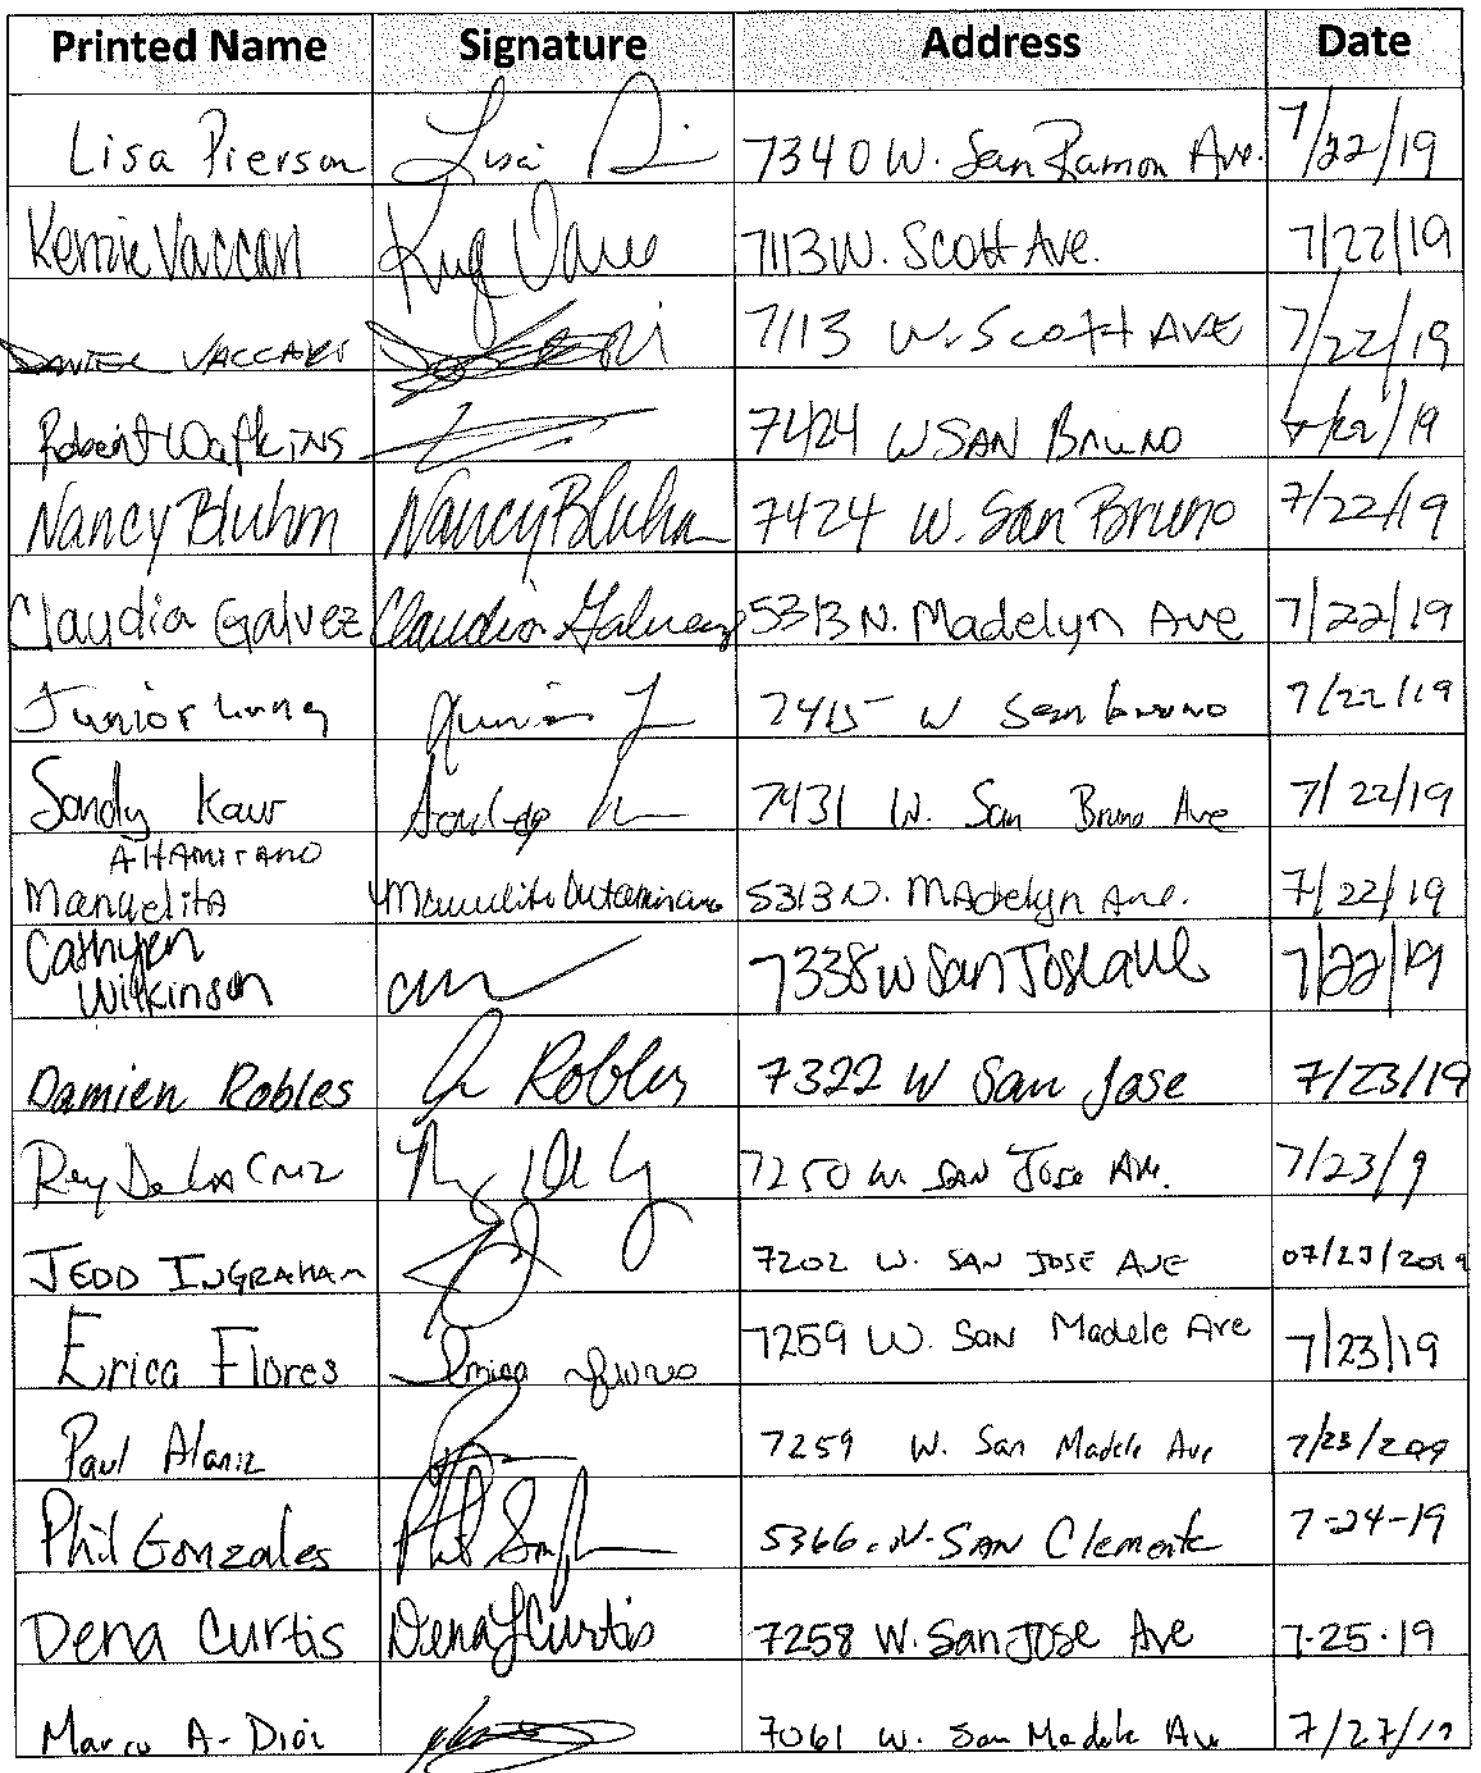 Printed Name Signature Address Date
Lisa Pierson Lisa 7340 W. San Ramon Ave. 7/22/19
Kerrie Vaccari 7113 W. Scott Ave. 7/22/19
DANIEL VACCARI 7113 W. Scott AVE 7/22/19
Robert Watkins 7424 W SAN Bruno 7/22/19
Nancy Bluhm Nancy Bluhm 7424 W. San Bruno 7/22/19
Claudia Galvez Claudia Galvez 5313 N. Madelyn Ave 7/22/19
Junior Junior 7415 W San bruno 7/22/19
Sandy Kaur 7431 W. San Bruno Ave 7/22/19
AltAmirano
Manuelita 5313 N. MAdelyn Ave. 7/22/19
Cathyen
Wilkinson 7338 W San Jose ave 7/22/19
Damien Robles Robles 7322 W San Jose 7/23/19
Rey De La Cruz 7250 W. SAN Jose Ave. 7/23/9
JEDD INGRAHAM 7202 W. SAN JOSE AVE 07/23/2019
Erica Flores 7259 W. San Madele Ave 7/23/19
Paul Alaniz 7259 W. San Madele Ave 7/23/2019
Phil Gonzales Phil 5366 N. SAN Clemente 7-24-19
Dena Curtis Dena L Curtis 7258 W. San Jose Ave 7-25-19
Marco A- 7061 W. San Madele Ave 7/27/19